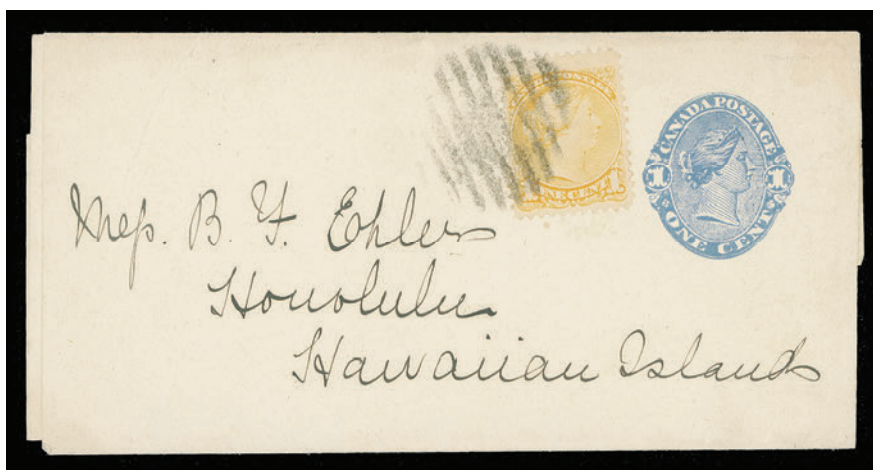 CANADA POSTAGE
1 1
ONE CENT
ONE CENT
Mess. B. F. Ehlers
Honolulu
Hawaiian Islands